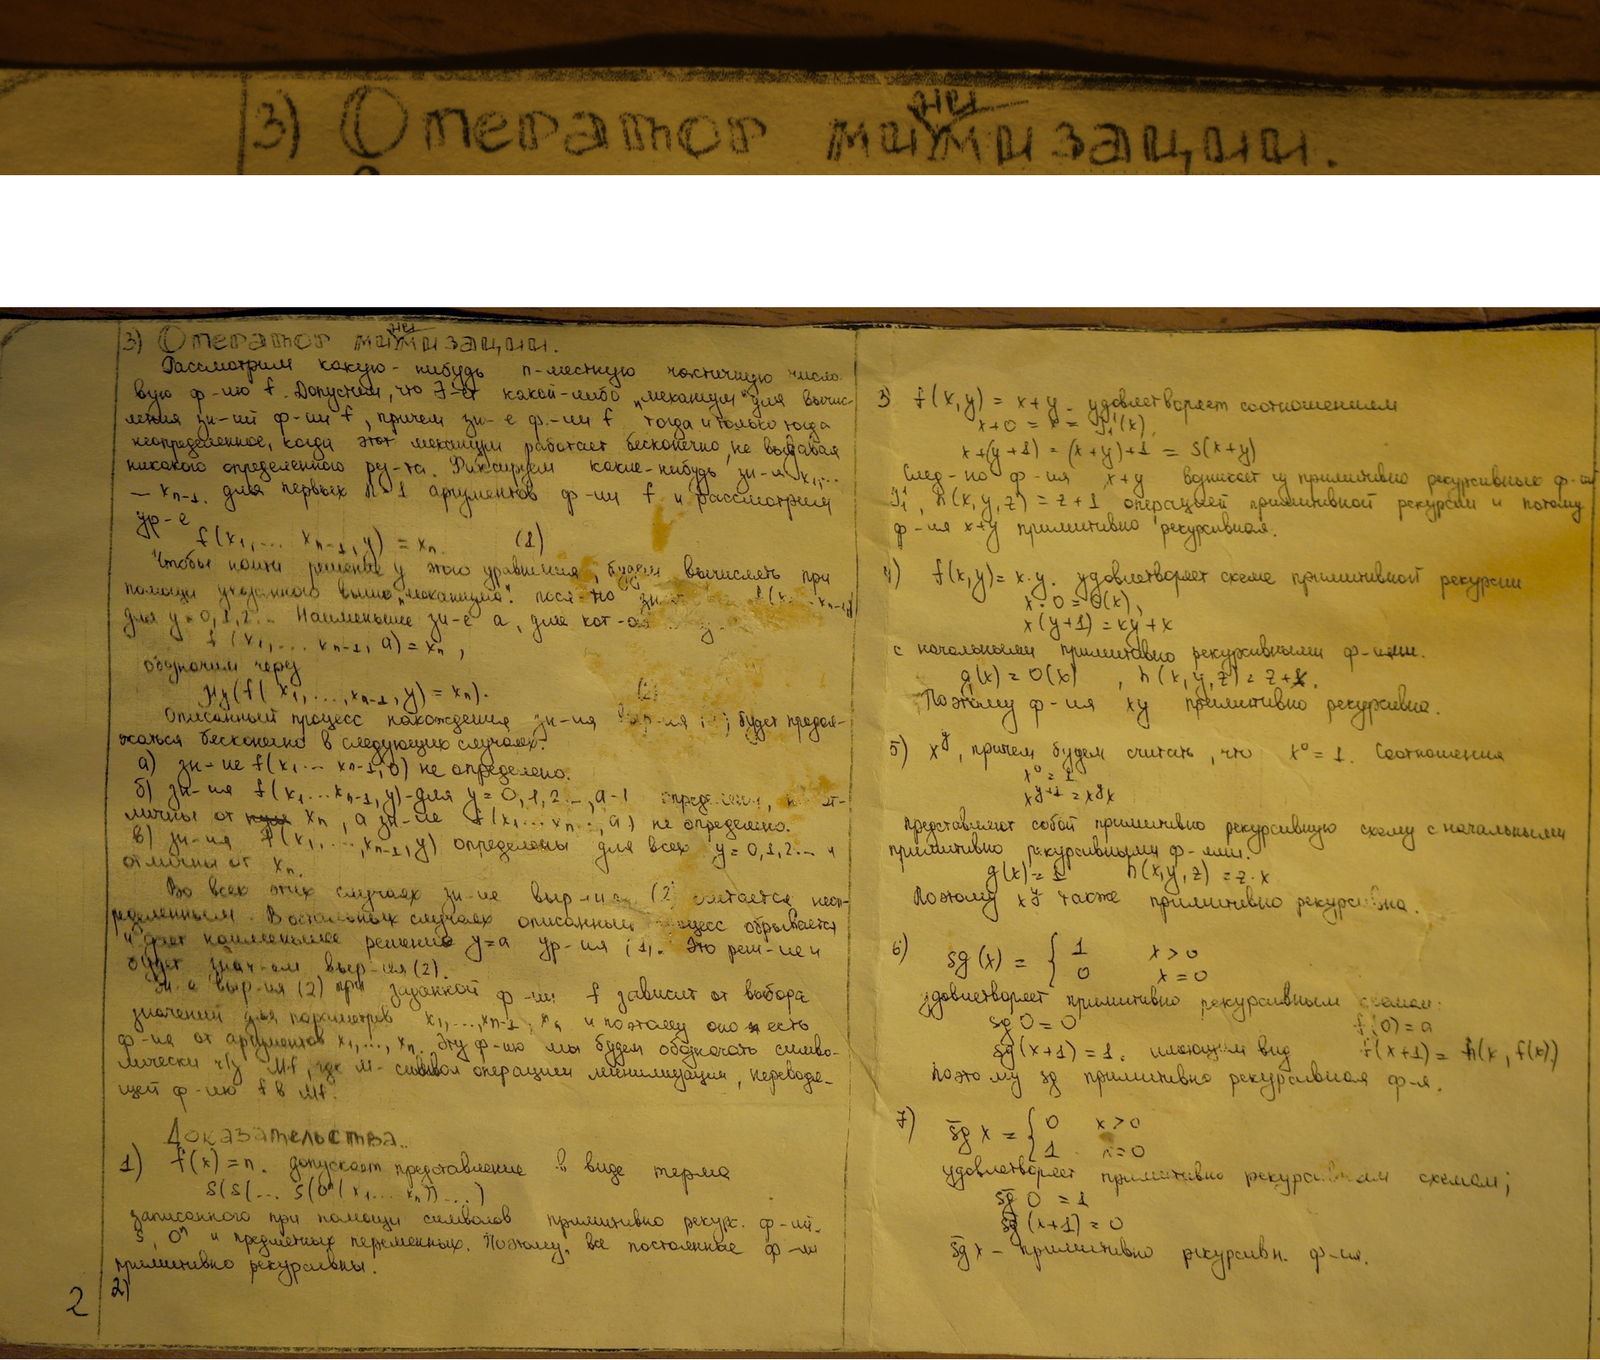 3) Оператор минимизации.
3) Оператор минимизации.
Рассмотрим какую-нибудь n-местную частичную число-
вую ф-ию f. Допустим, что ∃-ет какой-либо „механизм" для вычис-
ления зн-ий ф-ии f, причем зн-е ф-ии f тогда и только тогда
неопределенное, когда этот механизм работает бесконечно, не выдавая
никакого определенного рез-та. Фиксируем какие-нибудь зн-ия x₁,...
— xₙ₋₁ для первых n-1 аргументов ф-ии f и рассмотрим
ур-е
f(x₁,... xₙ₋₁, y) = xₙ. (1)
Чтобы найти решение y этого уравнения, будем вычислять при
помощи указанного выше „механизма". посл-но зн- f(x₁... xₙ₋₁,y)
для y=0,1,2... Наименьшее зн-е a, для кот-
f(x₁,... xₙ₋₁, a) = xₙ,
обозначим через
μy(f( x₁,...,xₙ₋₁, y) = xₙ). (2)
Описанный процесс нахождения зн-ия выр-ия будет продол-
жаться бесконечно в следующих случаях:
а) зн-ие f(x₁... xₙ₋₁,0) не определено.
б) зн-ия f(x₁...xₙ₋₁,y)-для y=0,1,2...,a-1 определены, но от-
личны от xₙ, а зн-ие f(x₁...xₙ₋₁, a) не определено.
в) зн-ия f(x₁,...,xₙ₋₁,y) определены для всех y=0,1,2... и
отличны от xₙ.
Во всех этих случаях зн-ие выр-ия (2) считается неоп-
ределенным. В остальных случаях описанный процесс обрывается
и дает наименьшее решение y=a ур-ия (1). Это реш-ие и
будет знач-ем выр-ия (2).
Зн-е выр-ия (2) при заданной ф-ии f зависит от выбора
значений для параметров x₁,...,xₙ₋₁, xₙ и поэтому оно есть
ф-ия от аргументов x₁,...,xₙ. Эту ф-ию мы будем обозначать симво-
лически ч/з Mf, где M- символ операции минимизации, переводя-
щей ф-ию f в Mf.
Доказательства..
1) f(x)=n. допускает представление в виде терма
S(S(... S(0ⁿ(x₁... xₙ))...)
записанного при помощи символов примитивно рекурс. ф-ий.
S, 0ⁿ и предметных переменных. Поэтому, все постоянные ф-ии
примитивно рекурсивны.
2)
2
3) f(x,y) = x+y. удовлетворяет соотношениям
x+0 = x = J₁¹(x),
x+(y+1) = (x+y)+1 = S(x+y)
След-но ф-ия x+y возникает из примитивно рекурсивных ф-ий
J₁¹, h(x,y,z) = z+1 операцией примитивной рекурсии и потому
ф-ия x+y примитивно рекурсивная.
4) f(x,y)= x·y. удовлетворяет схеме примитивной рекурсии
x·0 = 0(x),
x(y+1) = xy+x
с начальными примитивно рекурсивными ф-иями.
g(x) = 0(x), h(x,y,z) = z+x.
Поэтому ф-ия xy примитивно рекурсивна.
5) xʸ, причем будем считать, что x⁰=1. Соотношения
x⁰=1
xʸ⁺¹ = xʸx
представляют собой примитивно рекурсивную схему с начальными
примитивно рекурсивными ф-ями.
g(x)=1 h(x,y,z) = z·x
Поэтому xʸ также примитивно рекурсивна.
6) sg(x) = { 1 x>0
0 x=0
удовлетворяет примитивно рекурсивным схемам:
sg 0 = 0 f(0)=a
sg(x+1) = 1. имеющим вид f(x+1) = h(x, f(x))
поэтому sg примитивно рекурсивная ф-я.
7) s̄g x = { 0 x>0
1 x=0
удовлетворяет примитивно рекурсивным схемам;
s̄g 0 = 1
s̄g (x+1) = 0
s̄g x – примитивно рекурсивн. ф-ия.